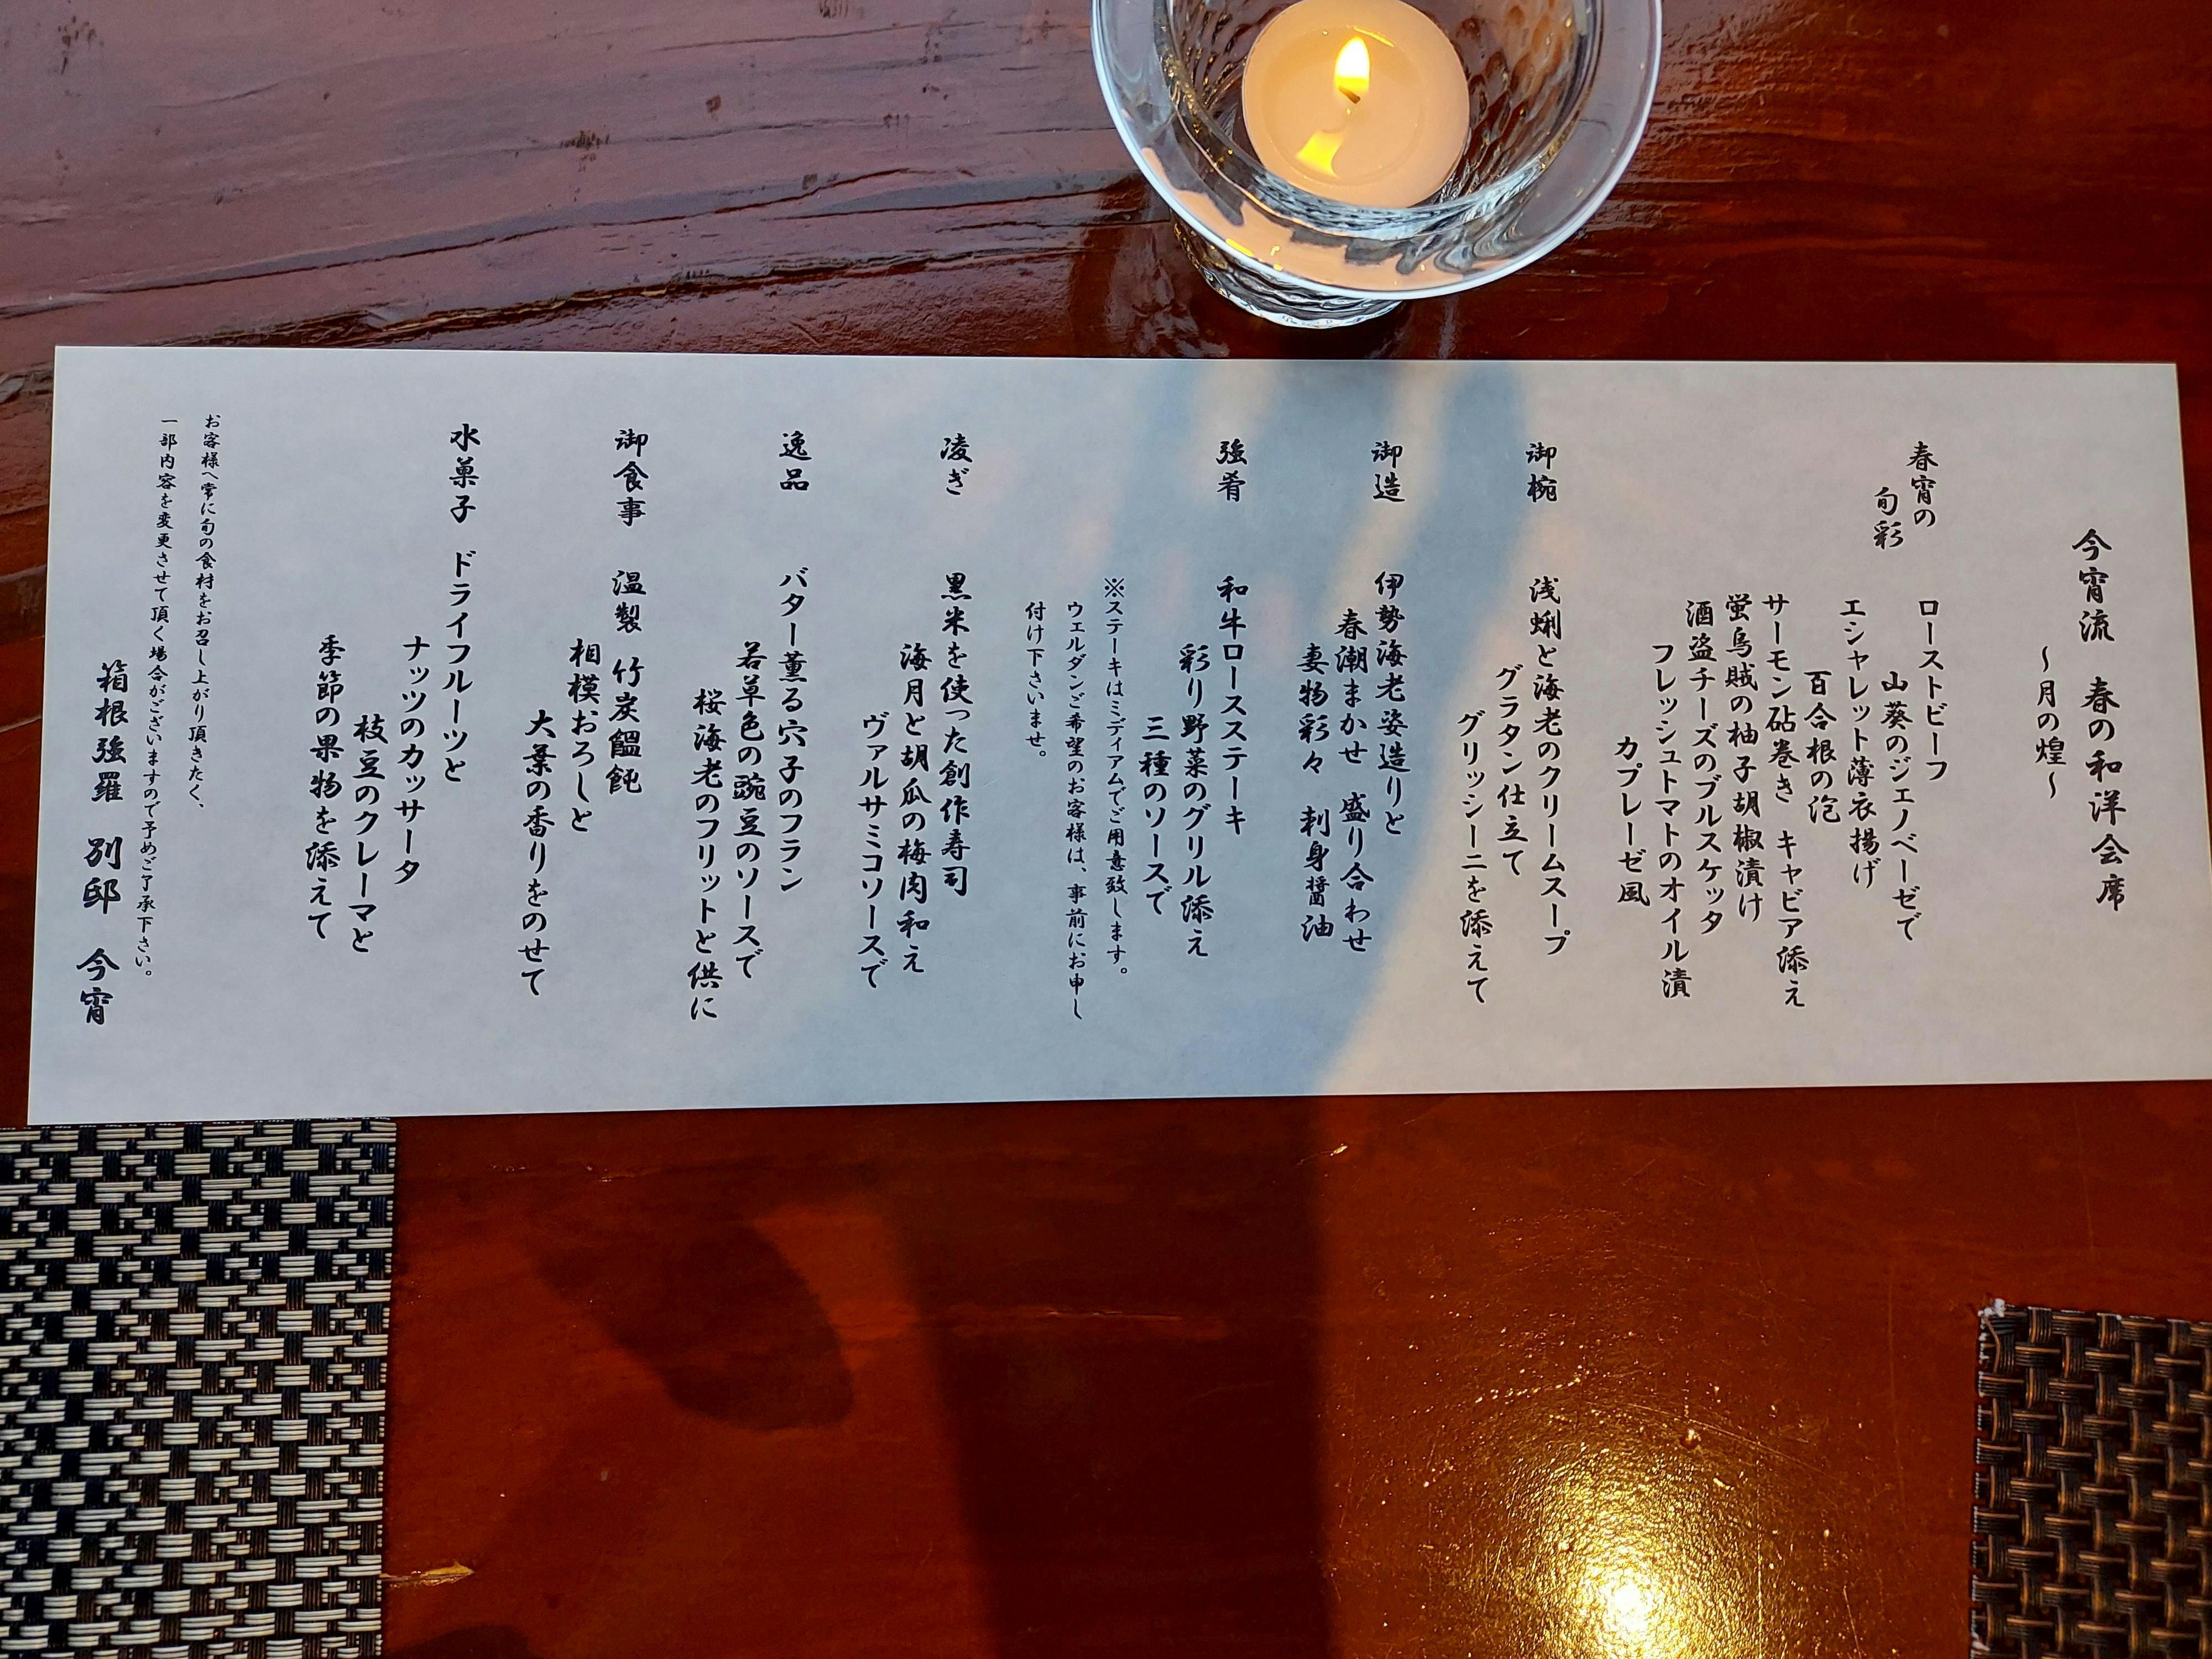 今宵流 春の和洋会席
～月の煌～
春宵の
旬彩
ローストビーフ
山葵のジェノベーゼで
エシャレット薄衣揚げ
百合根の泡
サーモン砧巻き キャビア添え
蛍烏賊の柚子胡椒漬け
酒盗チーズのブルスケッタ
フレッシュトマトのオイル漬
カプレーゼ風
御椀 浅蜊と海老のクリームスープ
グラタン仕立て
グリッシーニを添えて
御造 伊勢海老姿造りと
春潮まかせ 盛り合わせ
妻物彩々 刺身醤油
強肴 和牛ロースステーキ
彩り野菜のグリル添え
三種のソースで
※ステーキはミディアムでご用意致します。
ウェルダンご希望のお客様は、事前にお申し
付け下さいませ。
凌ぎ 黒米を使った創作寿司
海月と胡瓜の梅肉和え
ヴァルサミコソースで
逸品 バター薫る穴子のフラン
若草色の豌豆のソースで
桜海老のフリットと供に
御食事 温製 竹炭饂飩
相模おろしと
大葉の香りをのせて
水菓子 ドライフルーツと
ナッツのカッサータ
枝豆のクレーマと
季節の果物を添えて
お客様へ常に旬の食材をお召し上がり頂きたく、
一部内容を変更させて頂く場合がございますので予めご了承下さい。
箱根強羅 別邸 今宵